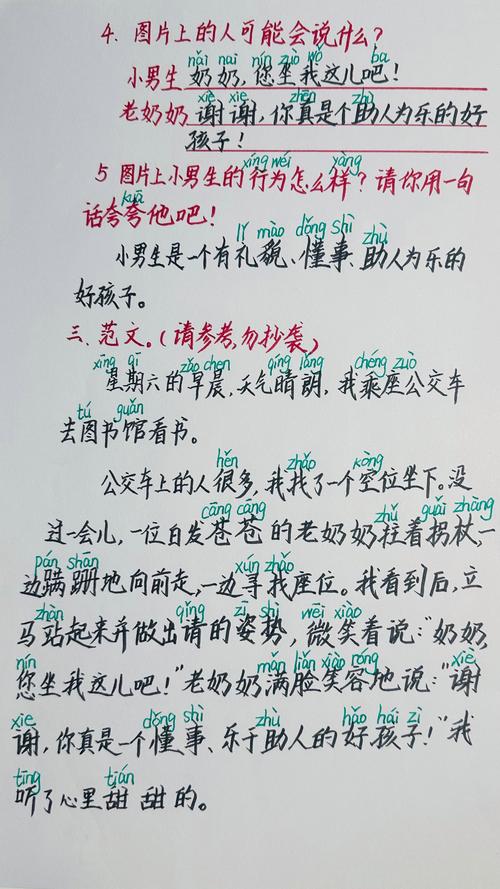 4. 图片上的人可能会说什么?
nǎi nai nín zuò wǒ ba
小男生 奶奶,您坐我这儿吧!
xiè xie zhēn zhù
老奶奶 谢谢,你真是个助人为乐的好
孩子!
xíng wéi yàng
5 图片上小男生的行为怎么样?请你用一句
kuā
话夸夸他吧!
lǐ mào dǒng shì zhù
小男生是一个有礼貌、懂事、助人为乐的
好孩子。
三、范文。(请参考,勿抄袭)
xīng qī zǎo chen qíng lǎng chéng zuò
星期六的早晨,天气晴朗,我乘座公交车
tú guǎn
去图书馆看书。
hěn zhǎo kòng
公交车上的人很多,我找了一个空位坐下。没
cāng cāng zhǔ guǎi zhàng
过一会儿,一位白发苍苍的老奶奶拄着拐杖,一
pán shān xún zhǎo
边蹒跚地向前走,一边寻找座位。我看到后,立
zhàn qíng zī shì wēi xiào
马站起来并做出请的姿势,微笑着说:“奶奶,
nín mǎn liǎn xiào róng xiè
您坐我这儿吧!”老奶奶满脸笑容地说:“谢
xie dǒng shì zhù hǎo hái zi
谢,你真是一个懂事、乐于助人的好孩子!”我
tīng tián
听了心里甜甜的。